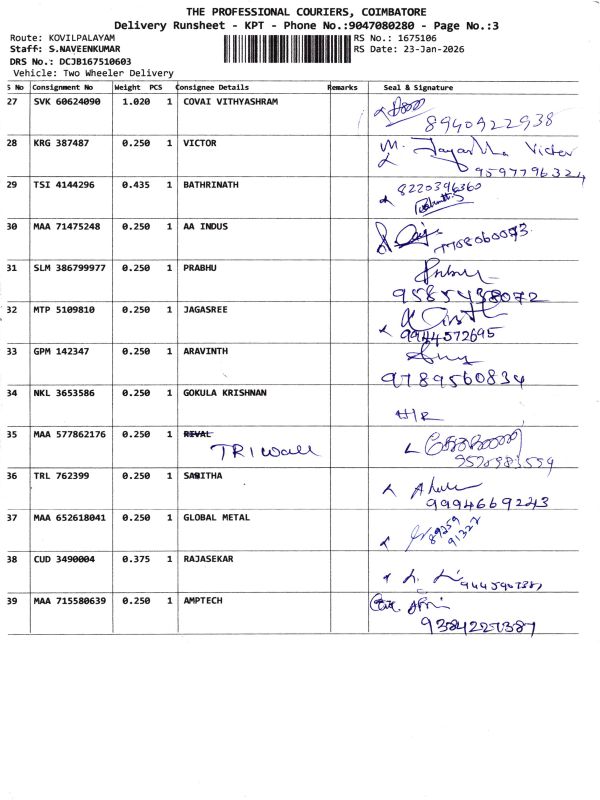 THE PROFESSIONAL COURIERS, COIMBATORE
Delivery Runsheet - KPT - Phone No.:9047080280 - Page No.:3
Route: KOVILPALAYAM
RS No.: 1675106
Staff: S.NAVEENKUMAR
RS Date: 23-Jan-2026
DRS No.: DCJB167510603
Vehicle: Two Wheeler Delivery
S No Consignment No Weight PCS Consignee Details Remarks Seal & Signature
27 SVK 60624090 1.020 1 COVAI VITHYASHRAM
8940922938
28 KRG 387487 0.250 1 VICTOR M. Victor
9597796324
29 TSI 4144296 0.435 1 BATHRINATH 8220396360
30 MAA 71475248 0.250 1 AA INDUS 7708060073
31 SLM 386799977 0.250 1 PRABHU
9585438072
32 MTP 5109810 0.250 1 JAGASREE
9944572695
33 GPM 142347 0.250 1 ARAVINTH
9789560834
34 NKL 3653586 0.250 1 GOKULA KRISHNAN
H/R
35 MAA 577862176 0.250 1 RIVAL
TRIWall
36 TRL 762399 0.250 1 SABITHA
9994669243
37 MAA 652618041 0.250 1 GLOBAL METAL
89259
91322
38 CUD 3490004 0.375 1 RAJASEKAR
39 MAA 715580639 0.250 1 AMPTECH